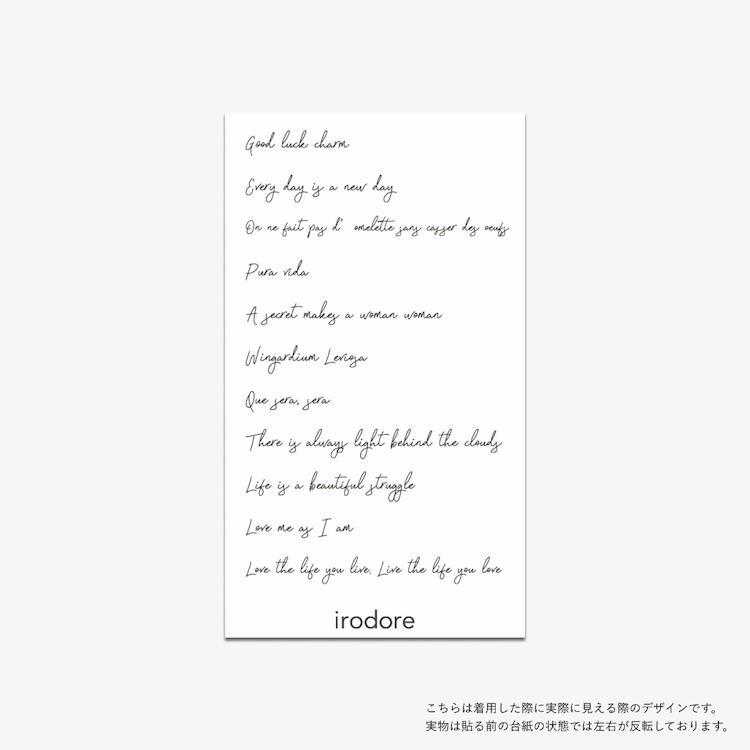 Good luck charm
Every day is a new day
On ne fait pas d' omelette sans casser des oeufs
Pura vida
A secret makes a woman woman
Wingardium Leviosa
Que sera, sera
There is always light behind the clouds
Life is a beautiful struggle
Love me as I am
Love the life you live. Live the life you love
irodore
こちらは着用した際に実際に見える際のデザインです。
実物は貼る前の台紙の状態では左右が反転しております。